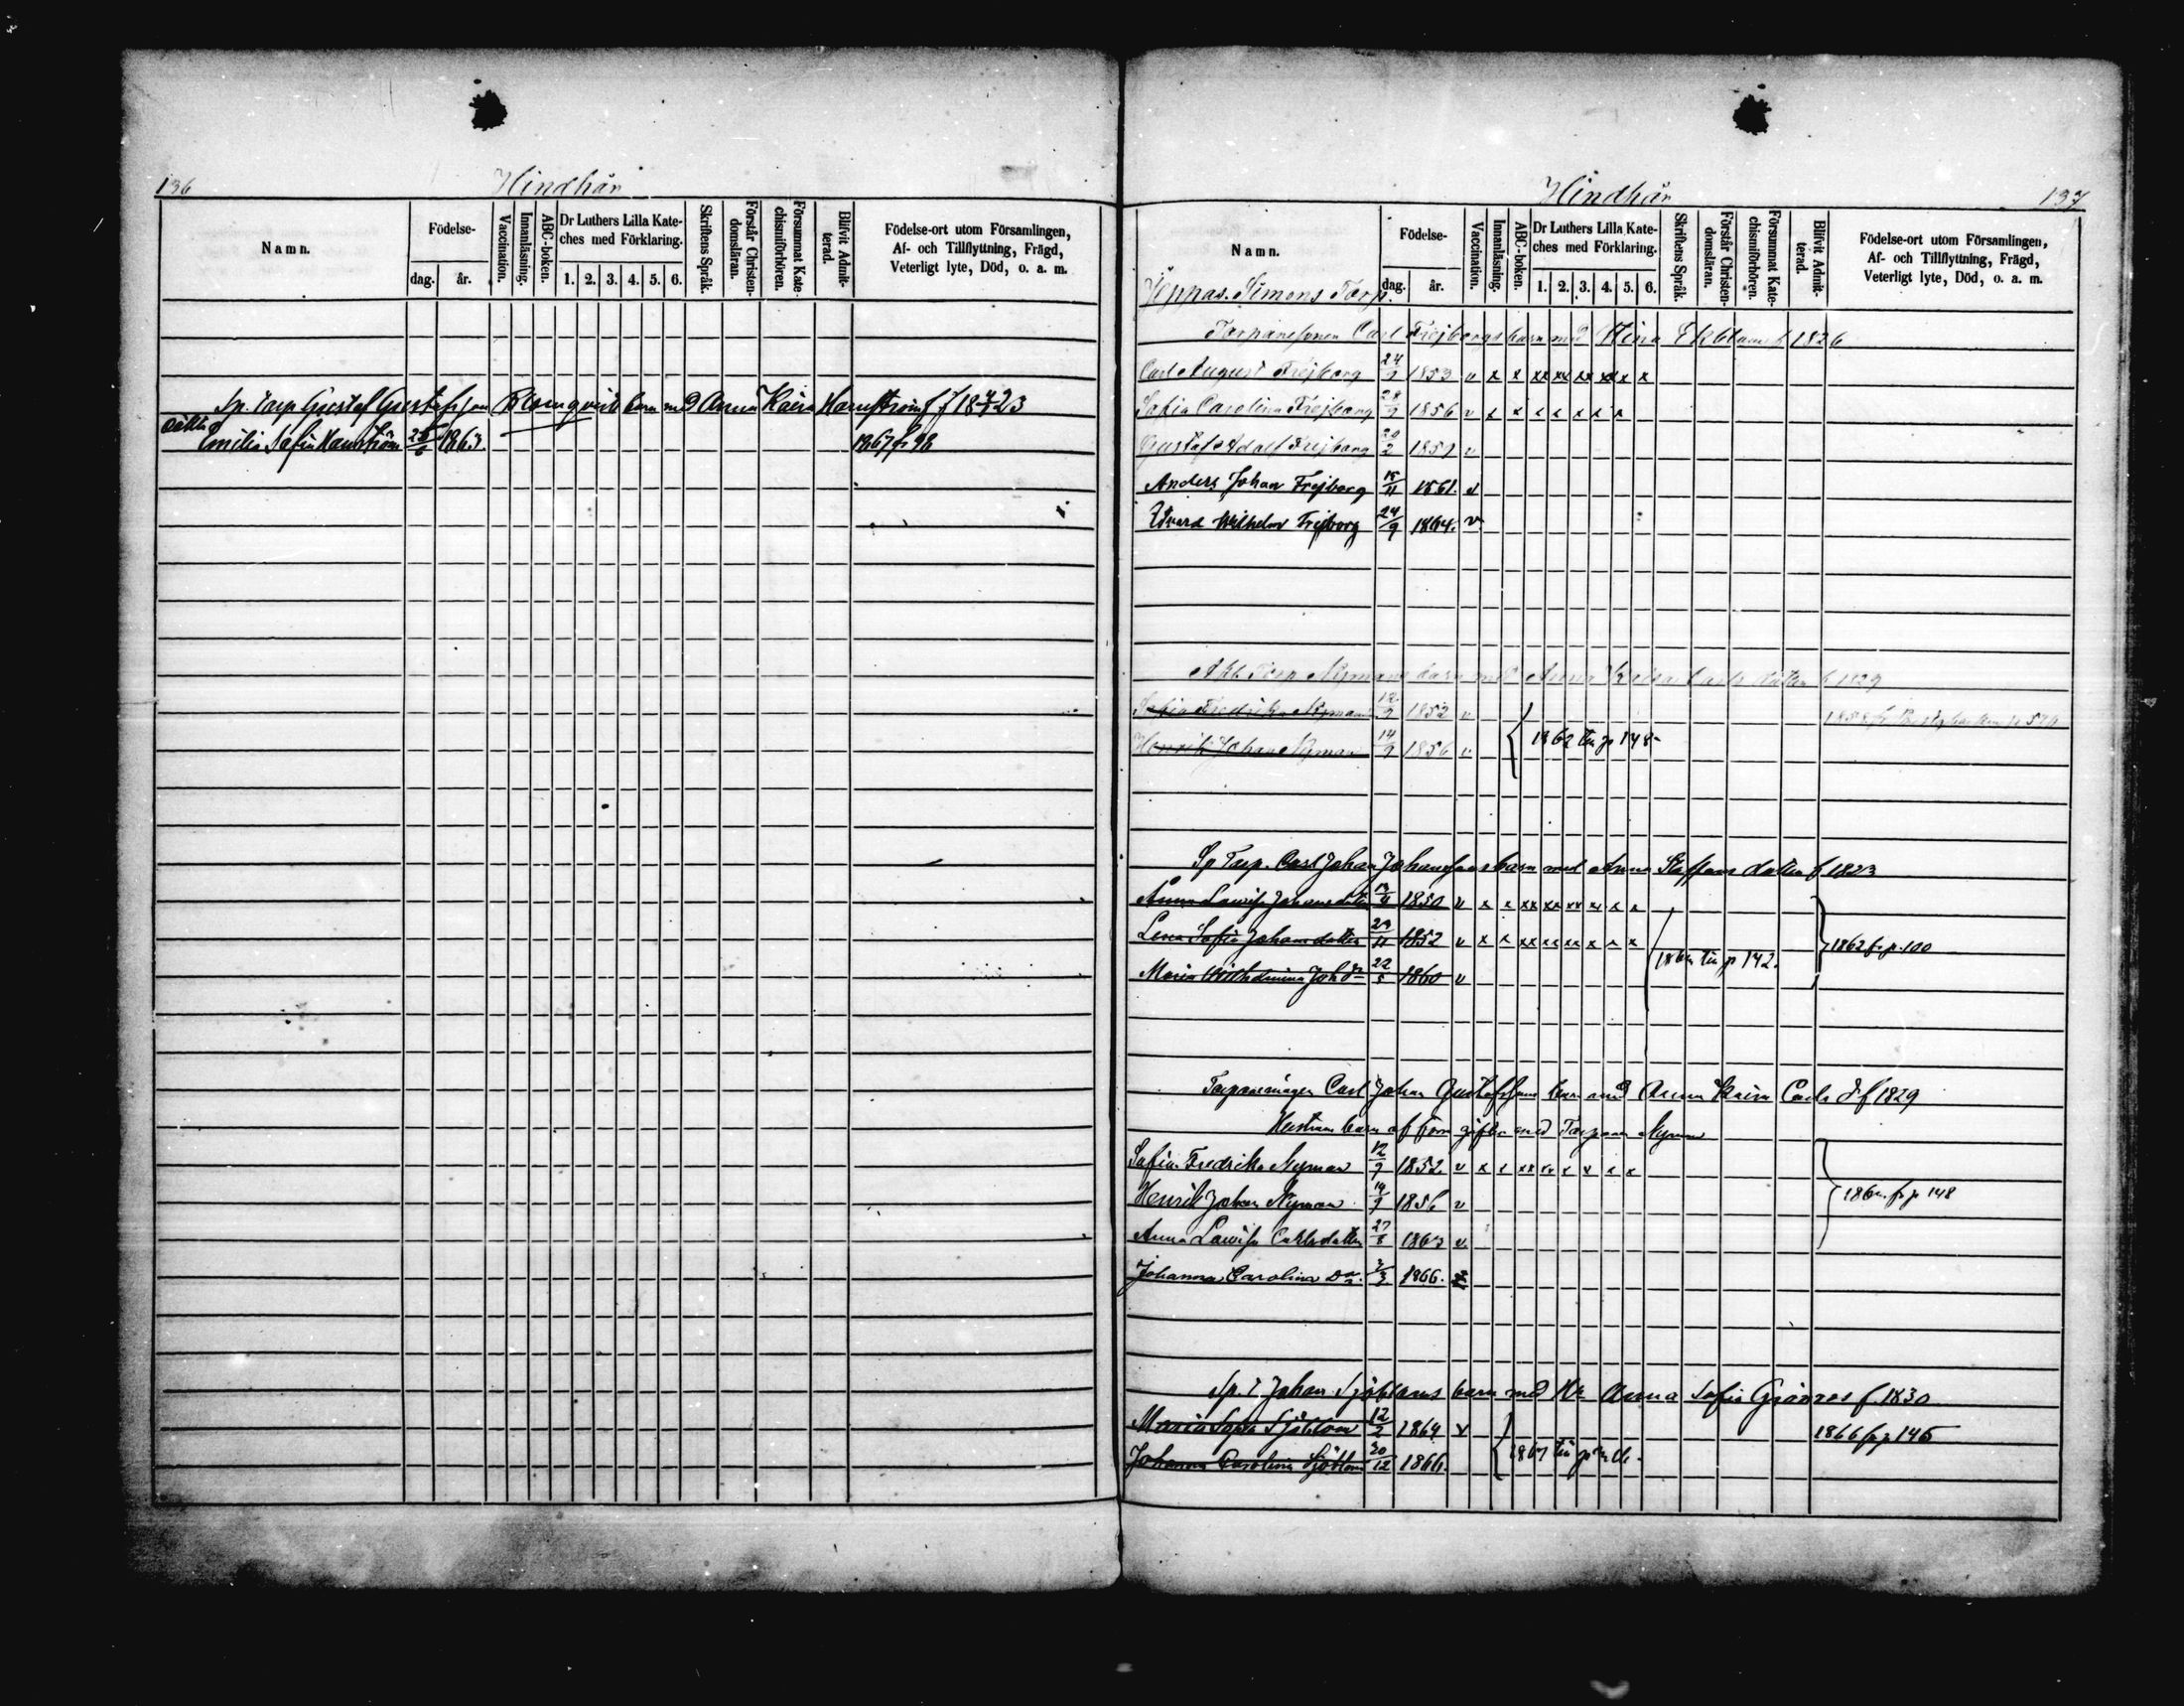 136 Hindhår
Namn. Födelse- dag. år. Vaccination. Innanläsning. ABC-boken. Dr Luthers Lilla Kate-ches med Förklaring. 1. 2. 3. 4. 5. 6. Skriftens Språk. Förstår Christen-domsläran. Försummat Kate-chismiförhören. Blifvit Admit-terad. Födelse-ort utom Församlingen, Af- och Tillflyttning, Frägd, Veterligt lyte, Död, o. a. m.
Sp. Torp Gustaf Gustafsson Blomqvist barn med Anna Kaisa Hamström f 1823
Emilia Sofia Hamström 1863. 1867 fr 98
Hindhår 137
Namn. Födelse- dag. år. Vaccination. Innanläsning. ABC-boken. Dr Luthers Lilla Kate-ches med Förklaring. 1. 2. 3. 4. 5. 6. Skriftens Språk. Förstår Christen-domsläran. Försummat Kate-chismiförhören. Blifvit Admit-terad. Födelse-ort utom Församlingen, Af- och Tillflyttning, Frägd, Veterligt lyte, Död, o. a. m.
Jeppas. Simons Torp.
Carl Frejbergs barn med Stina Ekblom f 1826
Carl August Frejberg 24/9 1853 v x x xx xx xx xx x x
Sofia Carolina Frejberg 28/9 1856 v x x x x x x x
Gustaf Adolf Frejberg 20/2 1859 v
Anders Johan Frejberg 15/11 1861. v
Edvard Wilhelm Frejberg 24/9 1864. v
Torp Nymans barn med Anna Kaisa Carls dotter f 1829
Sofia Fredrika Nyman 12/9 1852 v
Henrik Johan Nyman 14/9 1856 v 1862 till p 148
Sp Torp. Carl Johan Johanssons barn med Anna Staffans dotter f 1823
Anna Lovisa Johansdotter 1850 v x x xx xx xx x x x
Lena Sofia Johansdotter 29/11 1852 v x x xx xx xx x x x 1862 fr p. 100
Maria Wilhelmina Joh dr 22/5 1860 v till p 142.
Carl Johan Gustafssons barn med Anna Kaisa Carls d f 1829
Hustruns barn af förra gifte med Torparn Nyman
Sofia Fredrika Nyman 12/9 1852 v x x xx xx x x x x
Henrik Johan Nyman 14/9 1856 v fr p 148
Anna Lovisa Carlsdotter 1863 v
Johanna Carolina 1866.
Sp. T Johan Sjöbloms barn med Hu Anna Sofia Grönroos f. 1830
Maria Sofia Sjöblom 12/2 1864 v 1866 fr p 146
Johanna Carolina Sjöblom 20/12 1866. 1867 till